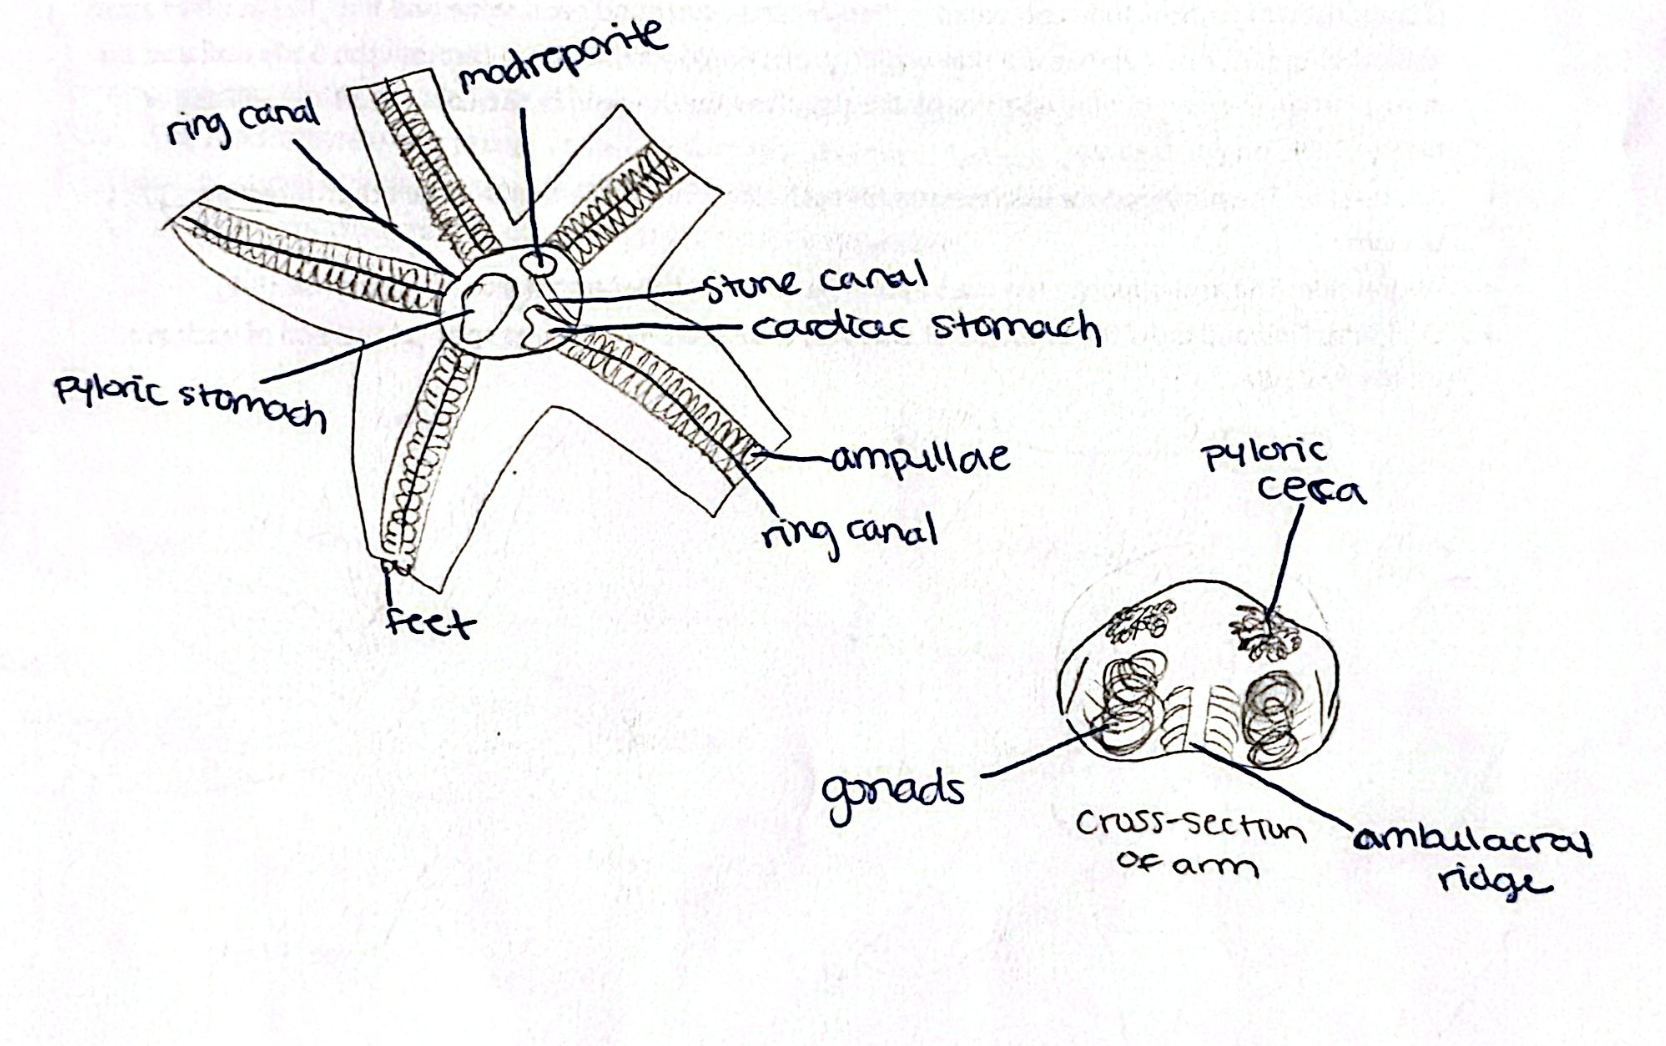 madreporite
ring canal
stone canal
cardiac stomach
pyloric stomach
ampullae
ring canal
feet
pyloric
ceca
gonads
cross-section
of arm
ambulacral
ridge